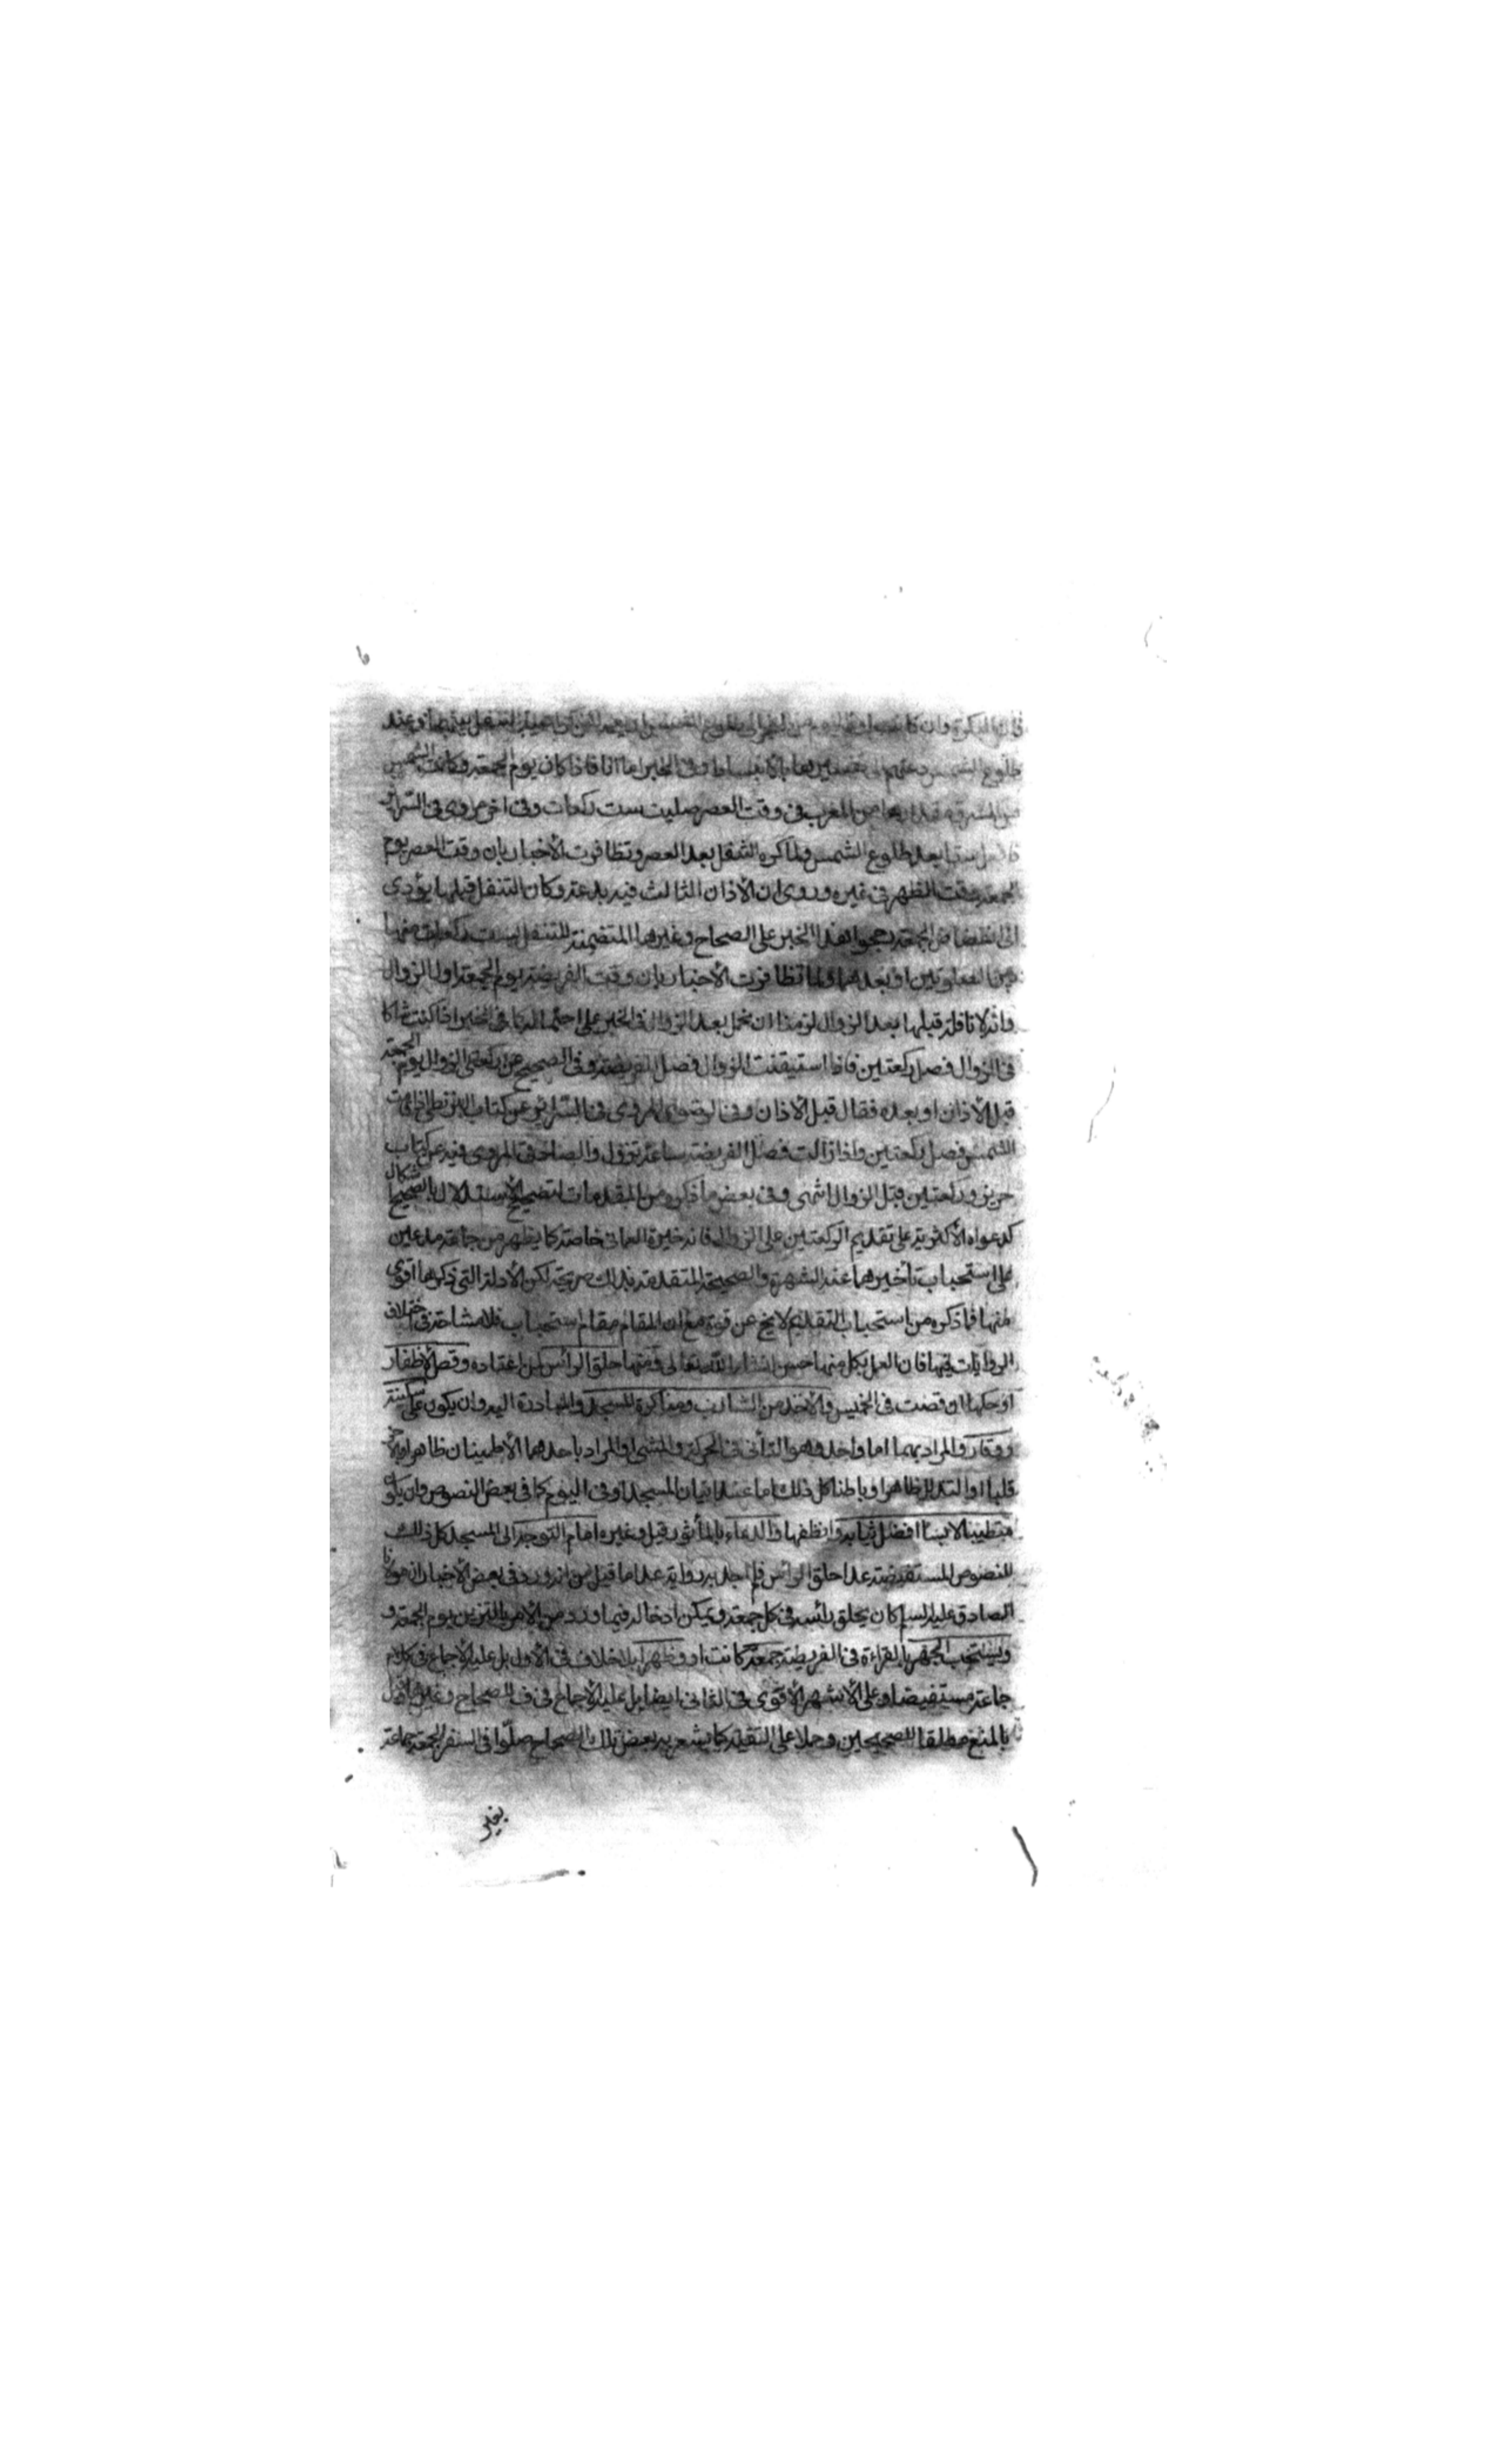 طلوع الشمس وفى الخبر اما انا فاذا كان يوم الجمعة وكانت الشمس
من المشرق مقدارها من المغرب فى وقت العصر صليت ست ركعات وفى اخر مروى فى السرائر
بعد طلوع الشمس ولما كره التنفل بعد العصر وتظافرت الأخبار بان وقت العصر يوم
الجمعة وقت الظهر فى غيره وروى ان الأذان الثالث فيه بدعة وكان التنفل قبلها يؤدى
الى انفضاض الجمعة رجحوا هذا الخبر على الصحاح وغيرها المتضمنة للتنفل بست ركعات منها
بين الصلوتين او بعدهما ولما تظافرت الأخبار بان وقت الفريضة يوم الجمعة اول الزوال
وانه لا نافلة قبلها بعد الزوال لزمنا ان نحمل بعد الزوال فى الخبر على احتماله كما فى الخبر اذا كنت شاكا
فى الزوال فصل ركعتين فاذا استيقنت الزوال فصل الفريضة وفى الصحيح عن ركعتى الزوال يوم الجمعة
قبل الأذان او بعده فقال قبل الأذان وفى الرضوى المروى فى السرائر عن كتاب البزنطى اذا قامت
الشمس فصل ركعتين واذا زالت فصل الفريضة ساعة تزول والصادقى المروى فيه عن كتاب
حريز وركعتين قبل الزوال انتهى وفى بعض ما ذكره من المقدمات لتصحيح الاستدلال بالصحيح اشكال
كدعواه الأكثرية على تقديم الركعتين على الزوال فانه خيرة العمانى خاصة كما يظهر من جماعة مدعين
على استحباب تأخيرهما عنه الشهرة والصحيحة المتقدمة بذلك صريحة لكن الأدلة التى ذكرها اقوى
منها فما ذكره من استحباب التقديم لا يخ عن قوة مع ان المقام مقام استحباب فلا مشاحة فى اختلاف
الروايات فيها فان العمل بكل منها حسن انشاء الله تعالى ومنها حلق الرأس لمن اعتاده وقص الأظفار
او حكها ان قصت فى الخميس والأخذ من الشارب ومباكرة المسجد والمبادرة اليه وان يكون على سكينة
ووقار والمراد بهما اما واحد وهو التأنى فى الحركة والمشى او المراد باحدهما الأطمينان ظاهرا وبالأخر
قلبا او التذلل ظاهرا وباطنا كل ذلك اما عند اتيان المسجد او فى اليوم كما فى بعض النصوص وان يكون
متطيبا لابسا افضل ثيابه وانظفها والدعاء بالمأثور قبل وغيره امام التوجه الى المسجد كل ذلك
للنصوص المستفيضة عدا حلق الرأس فلم اجد به رواية عدا ما قيل من انه ورد فى بعض الأخبار ان مولانا
الصادق عليه السلم كان يحلق رأسه فى كل جمعة ويمكن ادخاله فيما ورد من الأمر بالتزين يوم الجمعة و
ويستحب الجهر بالقراءة فى الفريضة جمعة كانت او ظهرا بلا خلاف فى الأول بل عليه الأجماع فى كلام
جماعة مستفيضا وعلى الأشهر الأقوى فى الثانى ايضا بل عليه الأجماع فى ف للصحاح وغيرها
بالمنع مطلقا للصحيحين وحملا على التقية كما يشعر به بعض تلك الصحاح صلوا فى السفر الجمعة جماعة
بغير